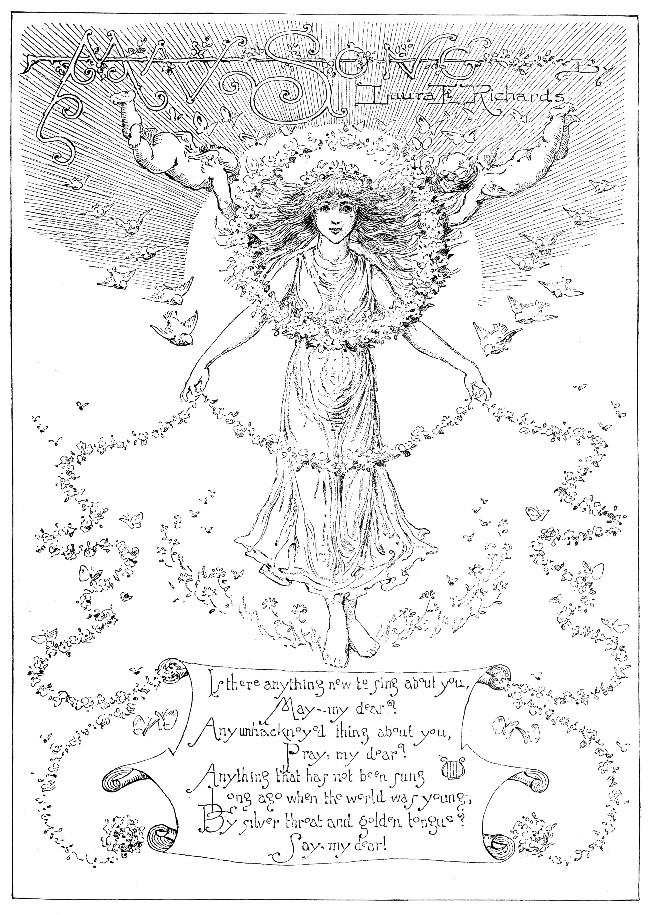 MAY SONG
by
Laura E. Richards
Is there anything new to sing about you,
May--my dear?
Any unhackneyed thing about you,
Pray, my dear?
Anything that has not been sung
Long ago when the world was young,
By silver throat and golden tongue?
Say, my dear!